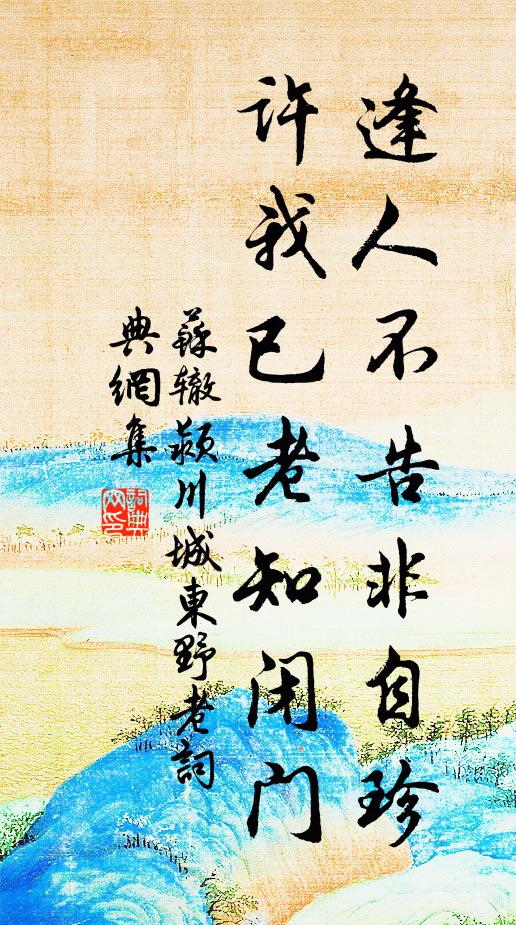 逢人不告非自珍
许我已老知闭门
蘇辙颍川城東野老詞
典網集
詞典網印